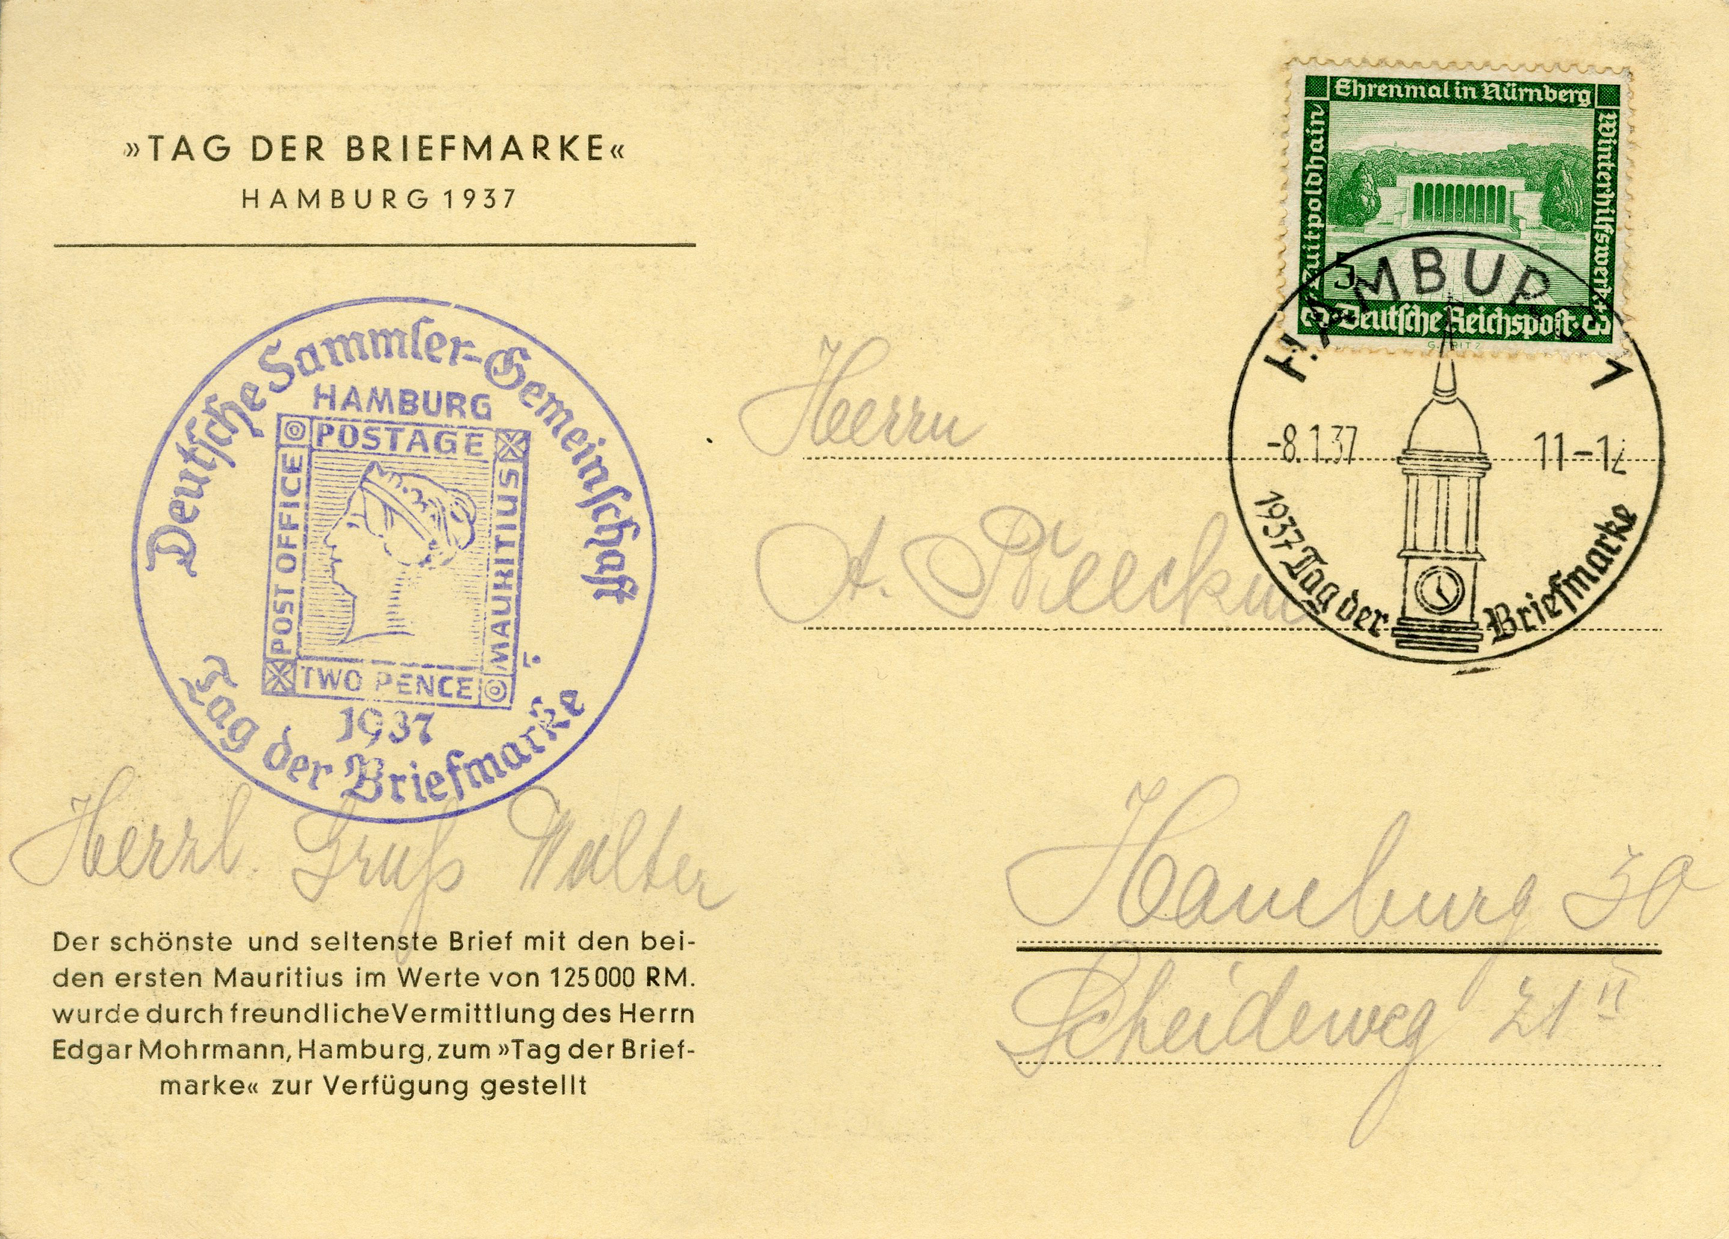 »TAG DER BRIEFMARKE«
HAMBURG 1937
Deutsche Sammler-Gemeinschaft
HAMBURG
POSTAGE
POST OFFICE
MAURITIUS
TWO PENCE
1937
Tag der Briefmarke
Herzl. Gruß Walter
Der schönste und seltenste Brief mit den bei-
den ersten Mauritius im Werte von 125000 RM.
wurde durch freundliche Vermittlung des Herrn
Edgar Mohrmann, Hamburg, zum »Tag der Brief-
marke« zur Verfügung gestellt
Ehrenmal in Nürnberg
Luitpoldhain
Winterhilfswerk
3 Deutsche Reichspost 3
HAMBURG 1
-8.1.37 11-12
1937 Tag der Briefmarke
Herrn
A.
Hamburg 30
Scheideweg 21 II